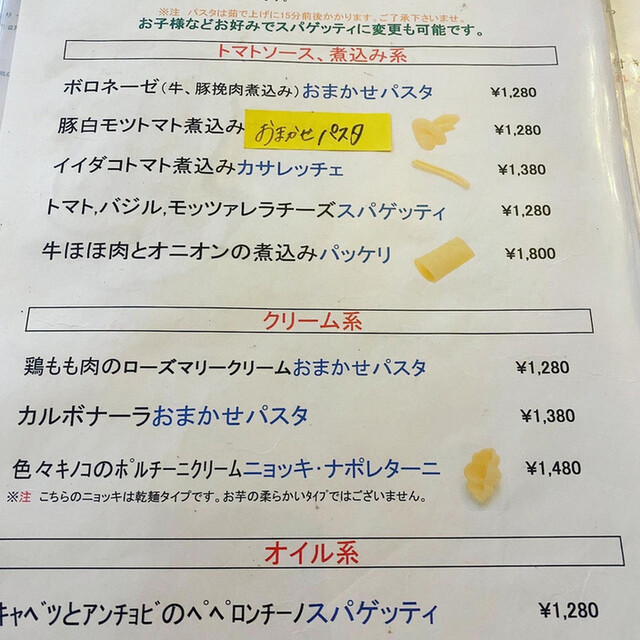 ※注 パスタは茹で上げに15分前後かかります。ご了承下さいませ。
お子様などお好みでスパゲッティに変更も可能です。
トマトソース、煮込み系
ボロネーゼ(牛、豚挽肉煮込み)おまかせパスタ ¥1,280
豚白モツトマト煮込み おまかせ パスタ ¥1,280
イイダコトマト煮込みカサレッチェ ¥1,380
トマト,バジル,モッツァレラチーズスパゲッティ ¥1,280
牛ほほ肉とオニオンの煮込みパッケリ ¥1,800
クリーム系
鶏もも肉のローズマリークリームおまかせパスタ ¥1,280
カルボナーラおまかせパスタ ¥1,380
色々キノコのポルチーニクリームニョッキ・ナポレターニ ¥1,480
※注 こちらのニョッキは乾麺タイプです。お芋の柔らかいタイプではございません。
オイル系
キャベツとアンチョビのペペロンチーノスパゲッティ ¥1,280